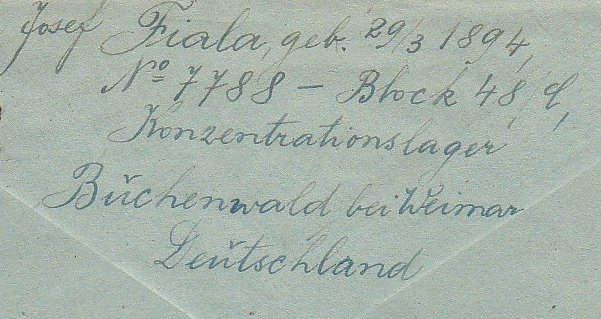 Josef Fiala, geb. 29/3 1894,
Nº 7788 – Block 48, d,
Konzentrationslager
Buchenwald bei Weimar
Deutschland